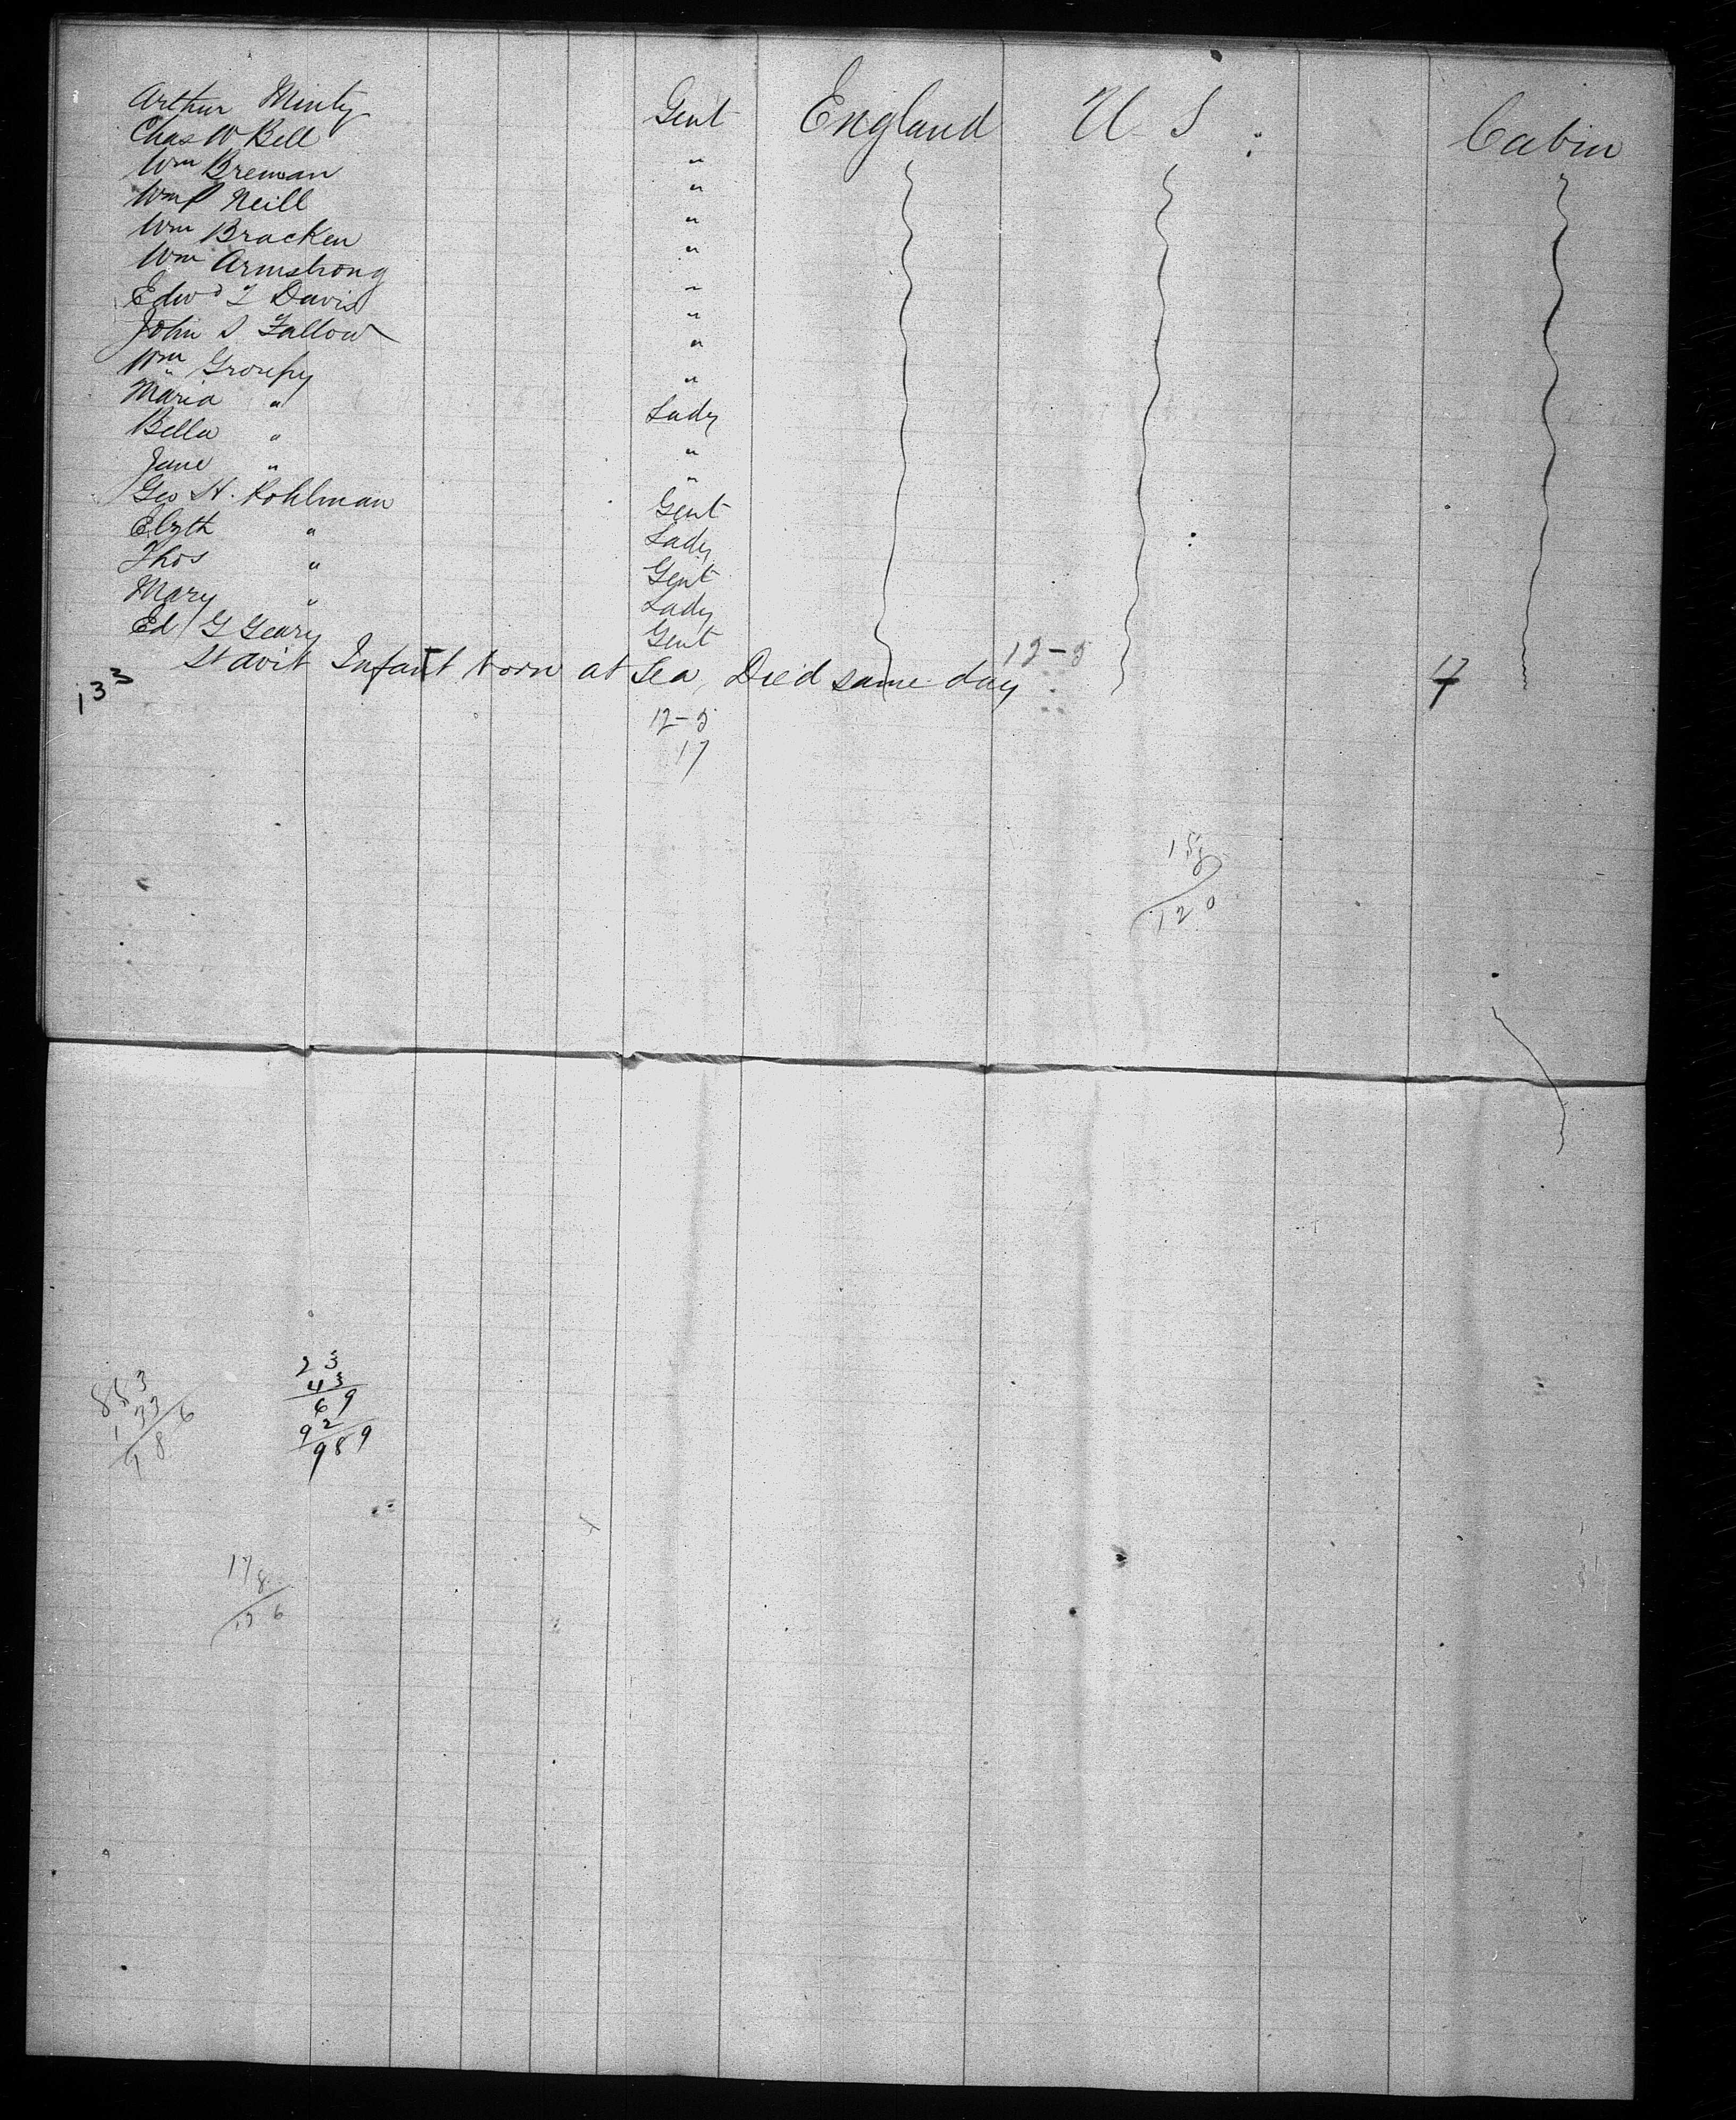 Arthur Minty Gent England U S. Cabin
Chas W Bell "
Wm Breman "
Wm P Neill "
Wm Bracken "
Wm Armstrong "
Edwd T Davis "
John S Fallow "
Wm Groupy "
Maria " Lady
Bella " "
Jane " "
Geo H. Pohlman Gent
Elzth " Lady
Thos " Gent
Mary " Lady
Ed G Geary Gent
St avit Infant born at Sea, Died same day 12-5 17
133
12-5
17
15
8
120
853
133
986
23
43
69
92
989
17
8
136